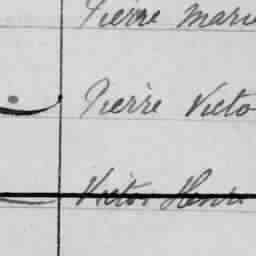 Pierre Marie
Pierre Victo
Victor Henri